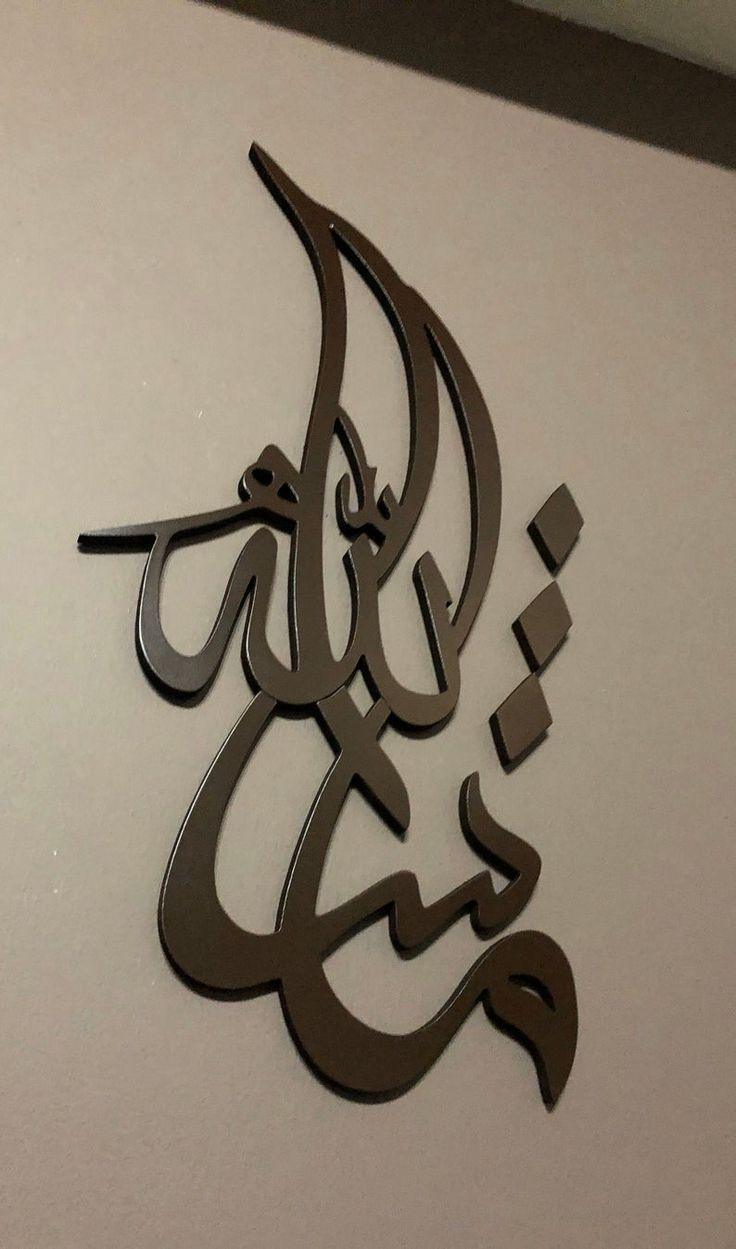 ما شا الله